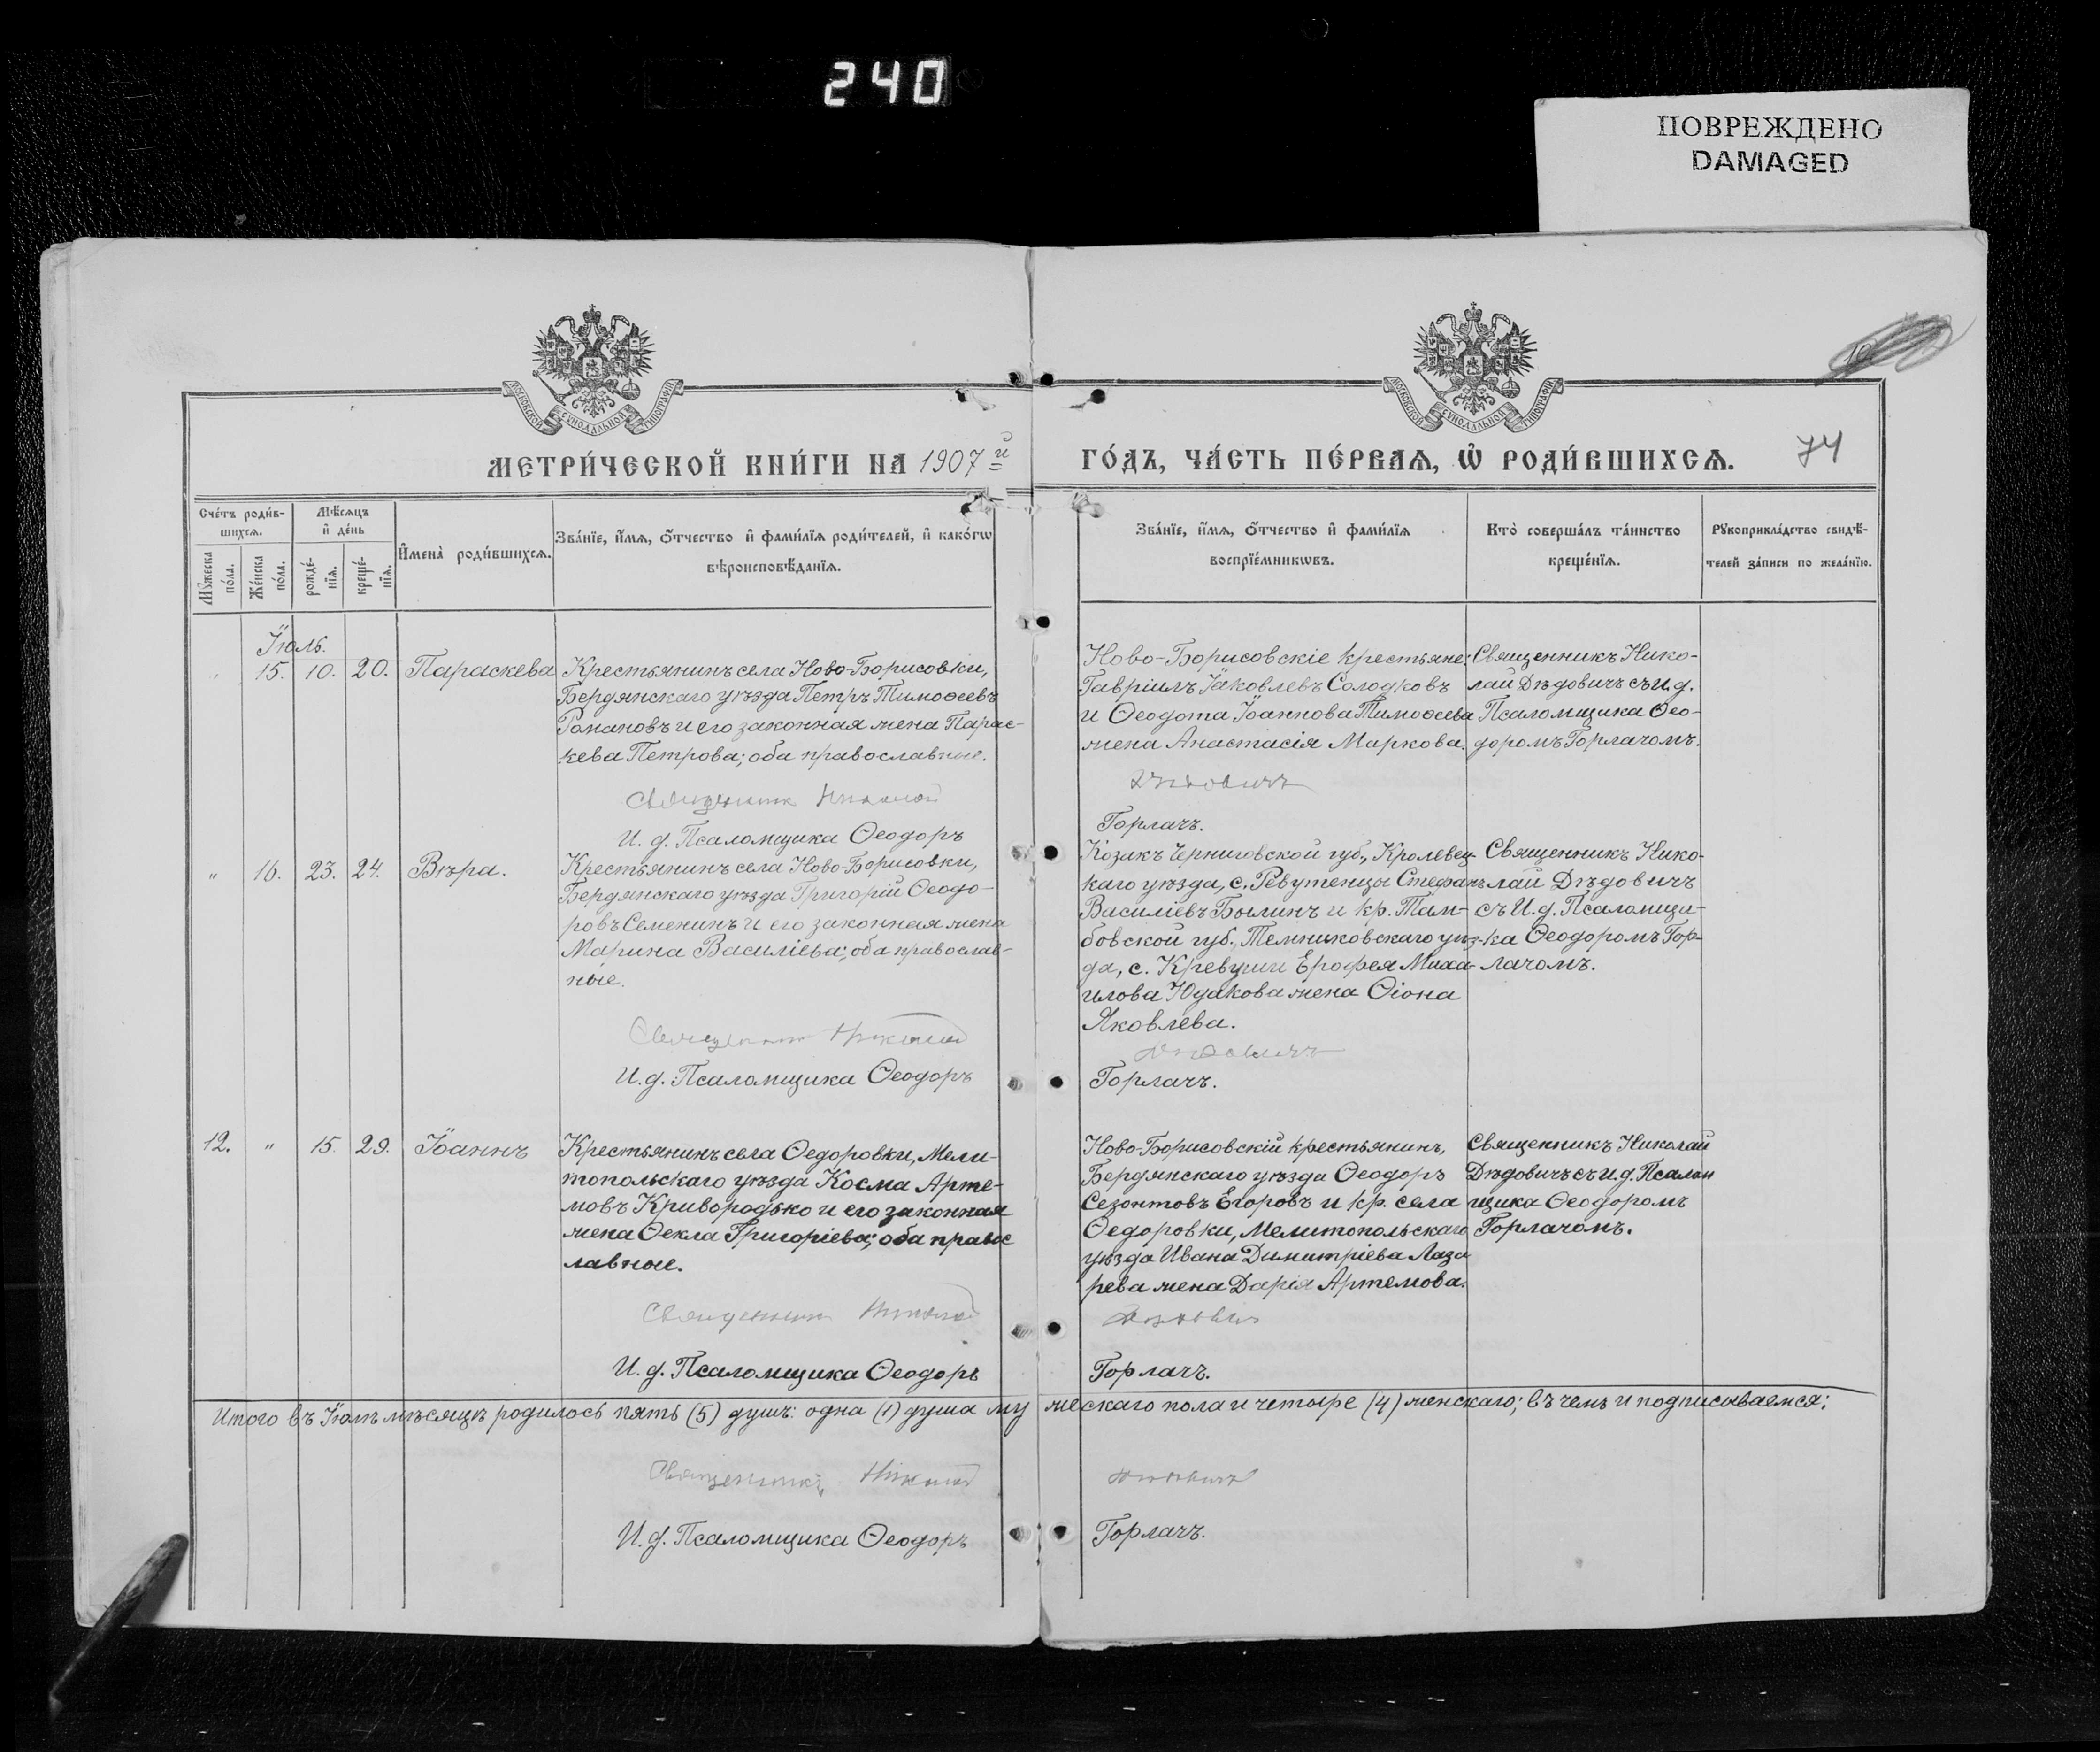 240
ПОВРЕЖДЕНО
DAMAGED
МОСКОВСКОЙ СѴНОДАЛЬНОЙ ТИПОГРАФІИ
МОСКОВСКОЙ СѴНОДАЛЬНОЙ ТИПОГРАФІИ
МЕТРИ́ЧЕСКОЙ КНИ́ГИ НА 1907 й ГО́ДЪ, ЧА́СТЬ ПЕ́РВАѦ, Ѡ҆ РОДИ́ВШИХСѦ.
74
Сче́тъ роди́в-
шихсѧ.
Мѣ́сѧцъ
и҆ де́нь
Мꙋ́жеска
по́ла.
Же́нска
по́ла.
рожде́-
нїѧ.
креще́-
нїѧ.
И҆мена̀ роди́вшихсѧ.
Зва́нїе, и҆́мѧ, ѻ҆́тчество и҆ фами́лїѧ роди́телей, и҆ како́гѡ
вѣроисповѣ́данїѧ.
Зва́нїе, и҆́мѧ, ѻ҆́тчество и҆ фами́лїѧ
воспрїе́мникѡвъ.
Кто̀ соверша́лъ та́инство
креще́нїѧ.
Рꙋкоприкла́дство свидѣ́-
телей за́писи по жела́нїю.
Іюль.
15. 10. 20. Параскева
Крестьянинъ села Ново-Борисовки,
Бердянскаго уѣзда Петръ Тимоѳеевъ
Романовъ и его законная жена Парас-
кева Петрова; оба православные.
Священникъ Николай
И. д. Псаломщика Ѳеодоръ
Ново-Борисовскіе крестьяне:
Гавріилъ Іаковлевъ Солодковъ
и Ѳеодота Іоаннова Тимоѳеева
жена Анастасія Маркова.
Дѣдовичъ
Горлачъ.
Священникъ Нико-
лай Дѣдовичъ съ И. д.
Псаломщика Ѳео-
доромъ Горлачомъ.
" 16. 23. 24. Вѣра.
Крестьянинъ села Ново-Борисовки,
Бердянскаго уѣзда Григорій Ѳеодо-
ровъ Семенинъ и его законная жена
Марина Василіева; оба православ-
ные.
Священникъ Николай
И. д. Псаломщика Ѳеодоръ
Козакъ Черниговской губ., Кролевец-
каго уѣзда, с. Ревутенцы Стефанъ
Василіевъ Былинъ и кр. Там-
бовской губ., Темниковскаго уѣз-
да, с. Кревуши Ерофея Миха-
илова Юдакова жена Ѳіона
Яковлева.
Дѣдовичъ
Горлачъ.
Священникъ Нико-
лай Дѣдовичъ
съ И. д. Псаломщи-
ка Ѳеодоромъ Гор-
лачомъ.
12. " 15. 29. Іоаннъ
Крестьянинъ села Ѳедоровки, Мели-
топольскаго уѣзда Косма Арте-
мовъ Кривородько и его законная
жена Ѳекла Григоріева; оба правос
лавные.
Священникъ Николай
И. д. Псаломщика Ѳеодоръ
Ново-Борисовскій крестьянинъ,
Бердянскаго уѣзда Ѳеодоръ
Сезонтовъ Егоровъ и кр. села
Ѳедоровки, Мелитопольскаго
уѣзда Ивана Димитріева Лаза
рева жена Дарія Артемова.
Дѣдовичъ
Горлачъ.
Священникъ Николай
Дѣдовичъ съ И. д. Псалом
щика Ѳеодоромъ
Горлачомъ.
Итого въ Іюлѣ мѣсяцѣ родилось пять (5) душъ: одна (1) душа мужескаго пола и четыре (4) женскаго; въ чемъ и подписываемся:
Священникъ Николай Дѣдовичъ
И. д. Псаломщика Ѳеодоръ Горлачъ.